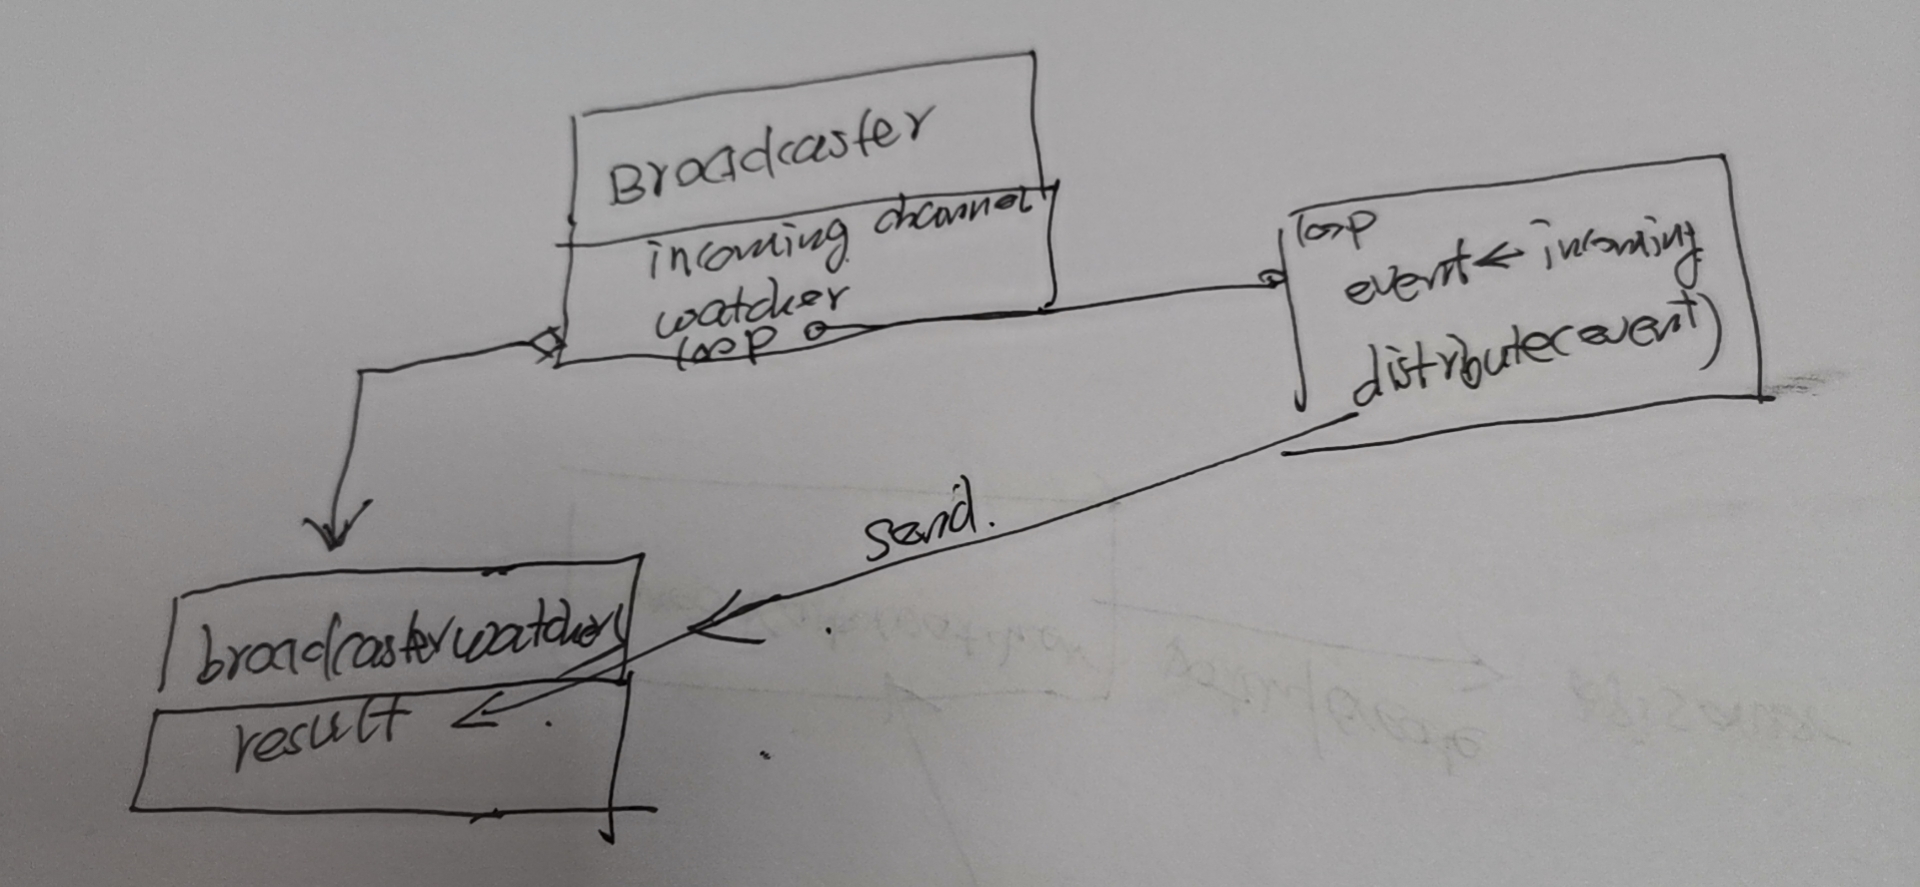 Broadcaster
incoming channel
watcher
loop
loop
event ← incoming
distribute(event)
send.
broadcasterwatcher
result